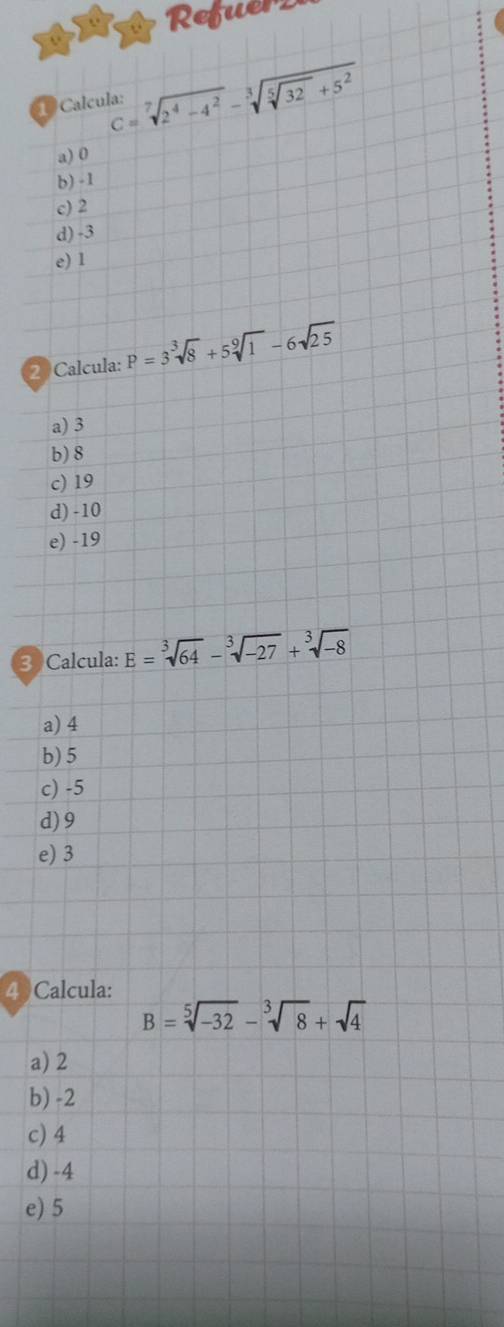 1 Calcula:
C = \sqrt[7]{2^4 - 4^2} - \sqrt[3]{\sqrt[5]{32} + 5^2}
a) 0
b) -1
c) 2
d) -3
e) 1
2 Calcula: P = 3\sqrt[3]{8} + 5\sqrt[9]{1} - 6\sqrt{25}
a) 3
b) 8
c) 19
d) -10
e) -19
3 Calcula: E = \sqrt[3]{64} - \sqrt[3]{-27} + \sqrt[3]{-8}
a) 4
b) 5
c) -5
d) 9
e) 3
4 Calcula:
B = \sqrt[5]{-32} - \sqrt[3]{8} + \sqrt{4}
a) 2
b) -2
c) 4
d) -4
e) 5